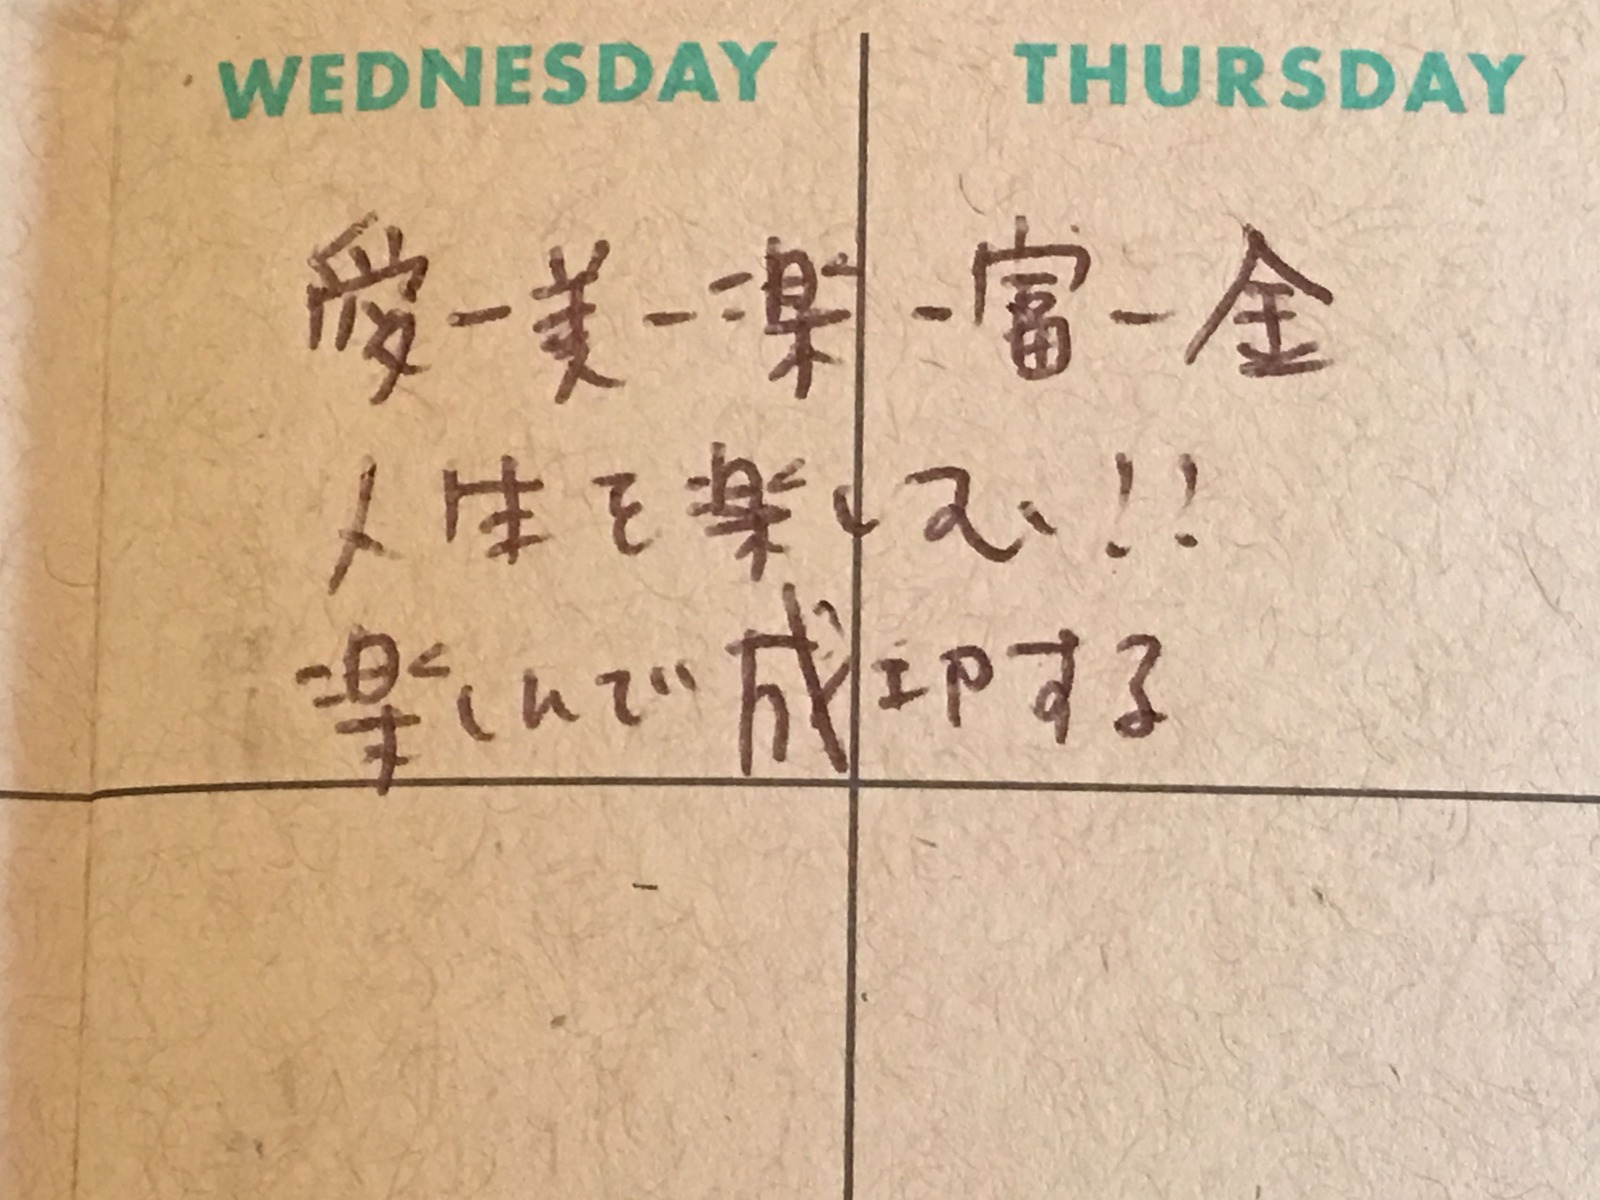 WEDNESDAY THURSDAY
愛-美-楽-富-金
人生を楽しむ!!
楽しんで成功する